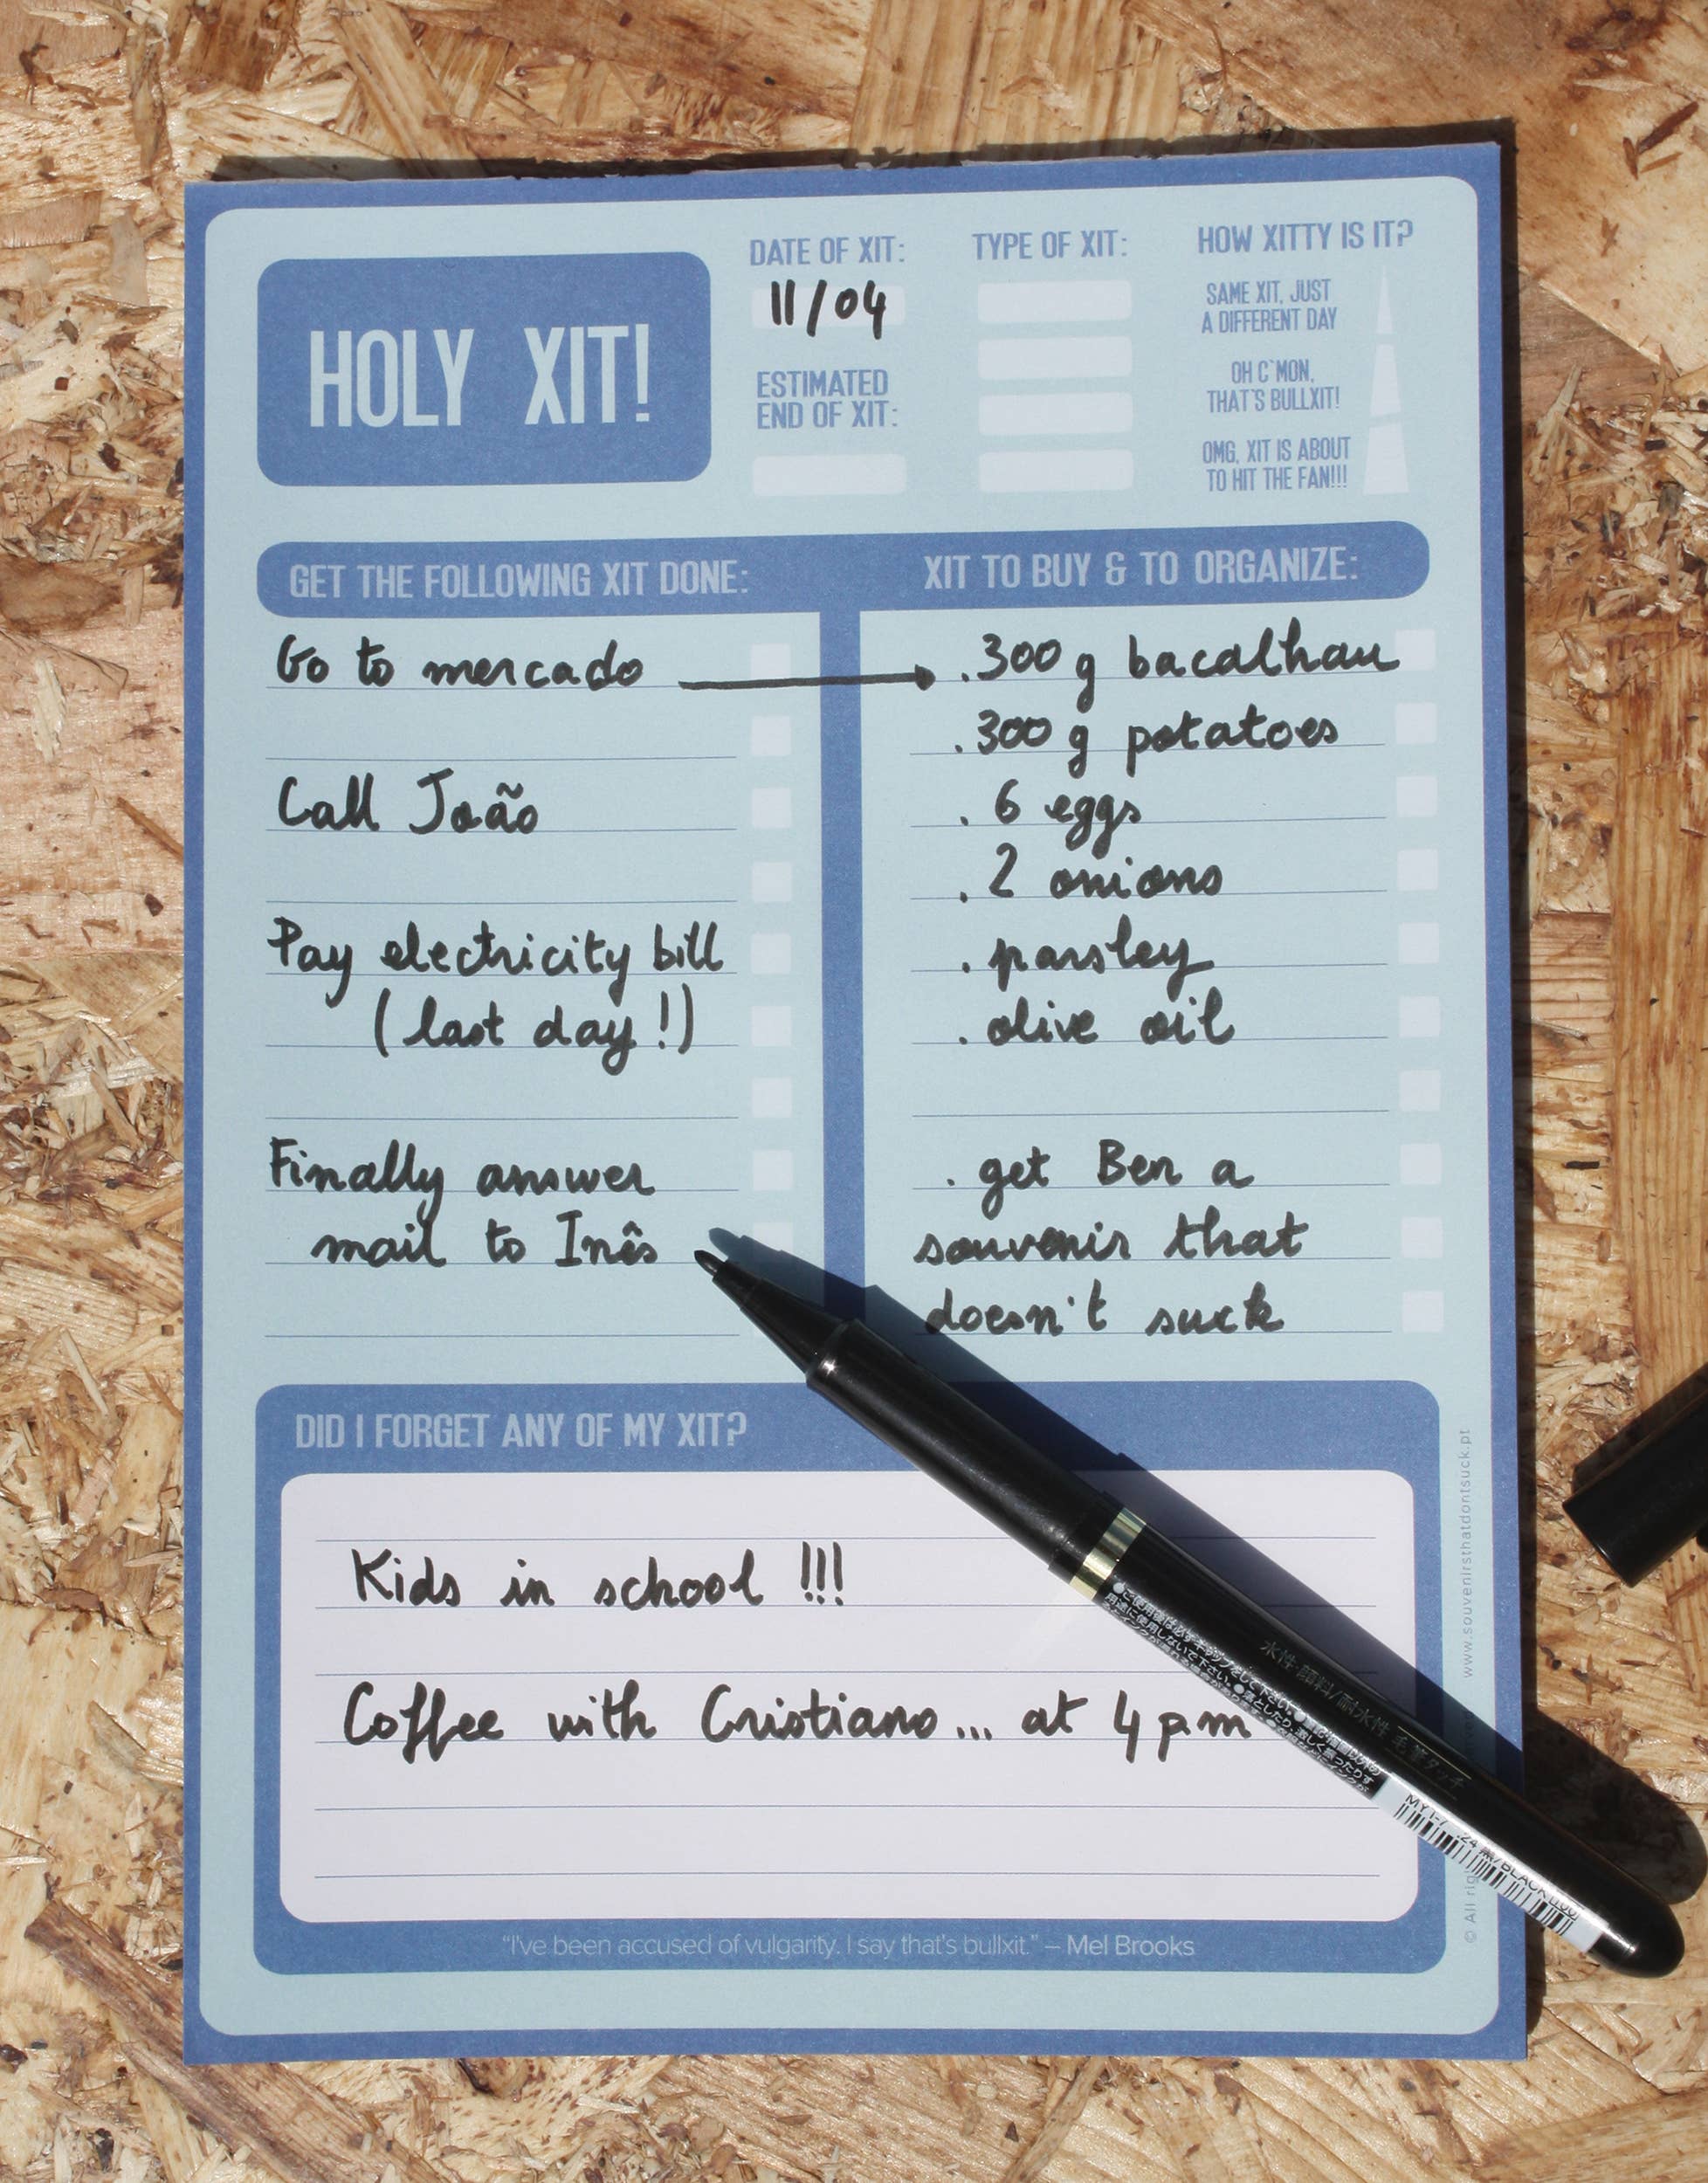 HOLY XIT!
DATE OF XIT:
11/04
ESTIMATED
END OF XIT:
TYPE OF XIT:
HOW XITTY IS IT?
SAME XIT, JUST
A DIFFERENT DAY
OH C`MON,
THAT'S BULLXIT!
OMG, XIT IS ABOUT
TO HIT THE FAN!!!
GET THE FOLLOWING XIT DONE:
Go to mercado
Call João
Pay electricity bill
(last day!)
Finally answer
mail to Inês
XIT TO BUY & TO ORGANIZE:
.300 g bacalhau
.300 g potatoes
. 6 eggs
. 2 onions
. parsley
. olive oil
. get Ben a
souvenir that
doesn't suck
DID I FORGET ANY OF MY XIT?
Kids in school !!!
Coffee with Cristiano... at 4 pm
"I've been accused of vulgarity. I say that's bullxit." – Mel Brooks
www.souvenirsthatdontsuck.pt
© All
水性顔料/耐水性 毛筆タッチ